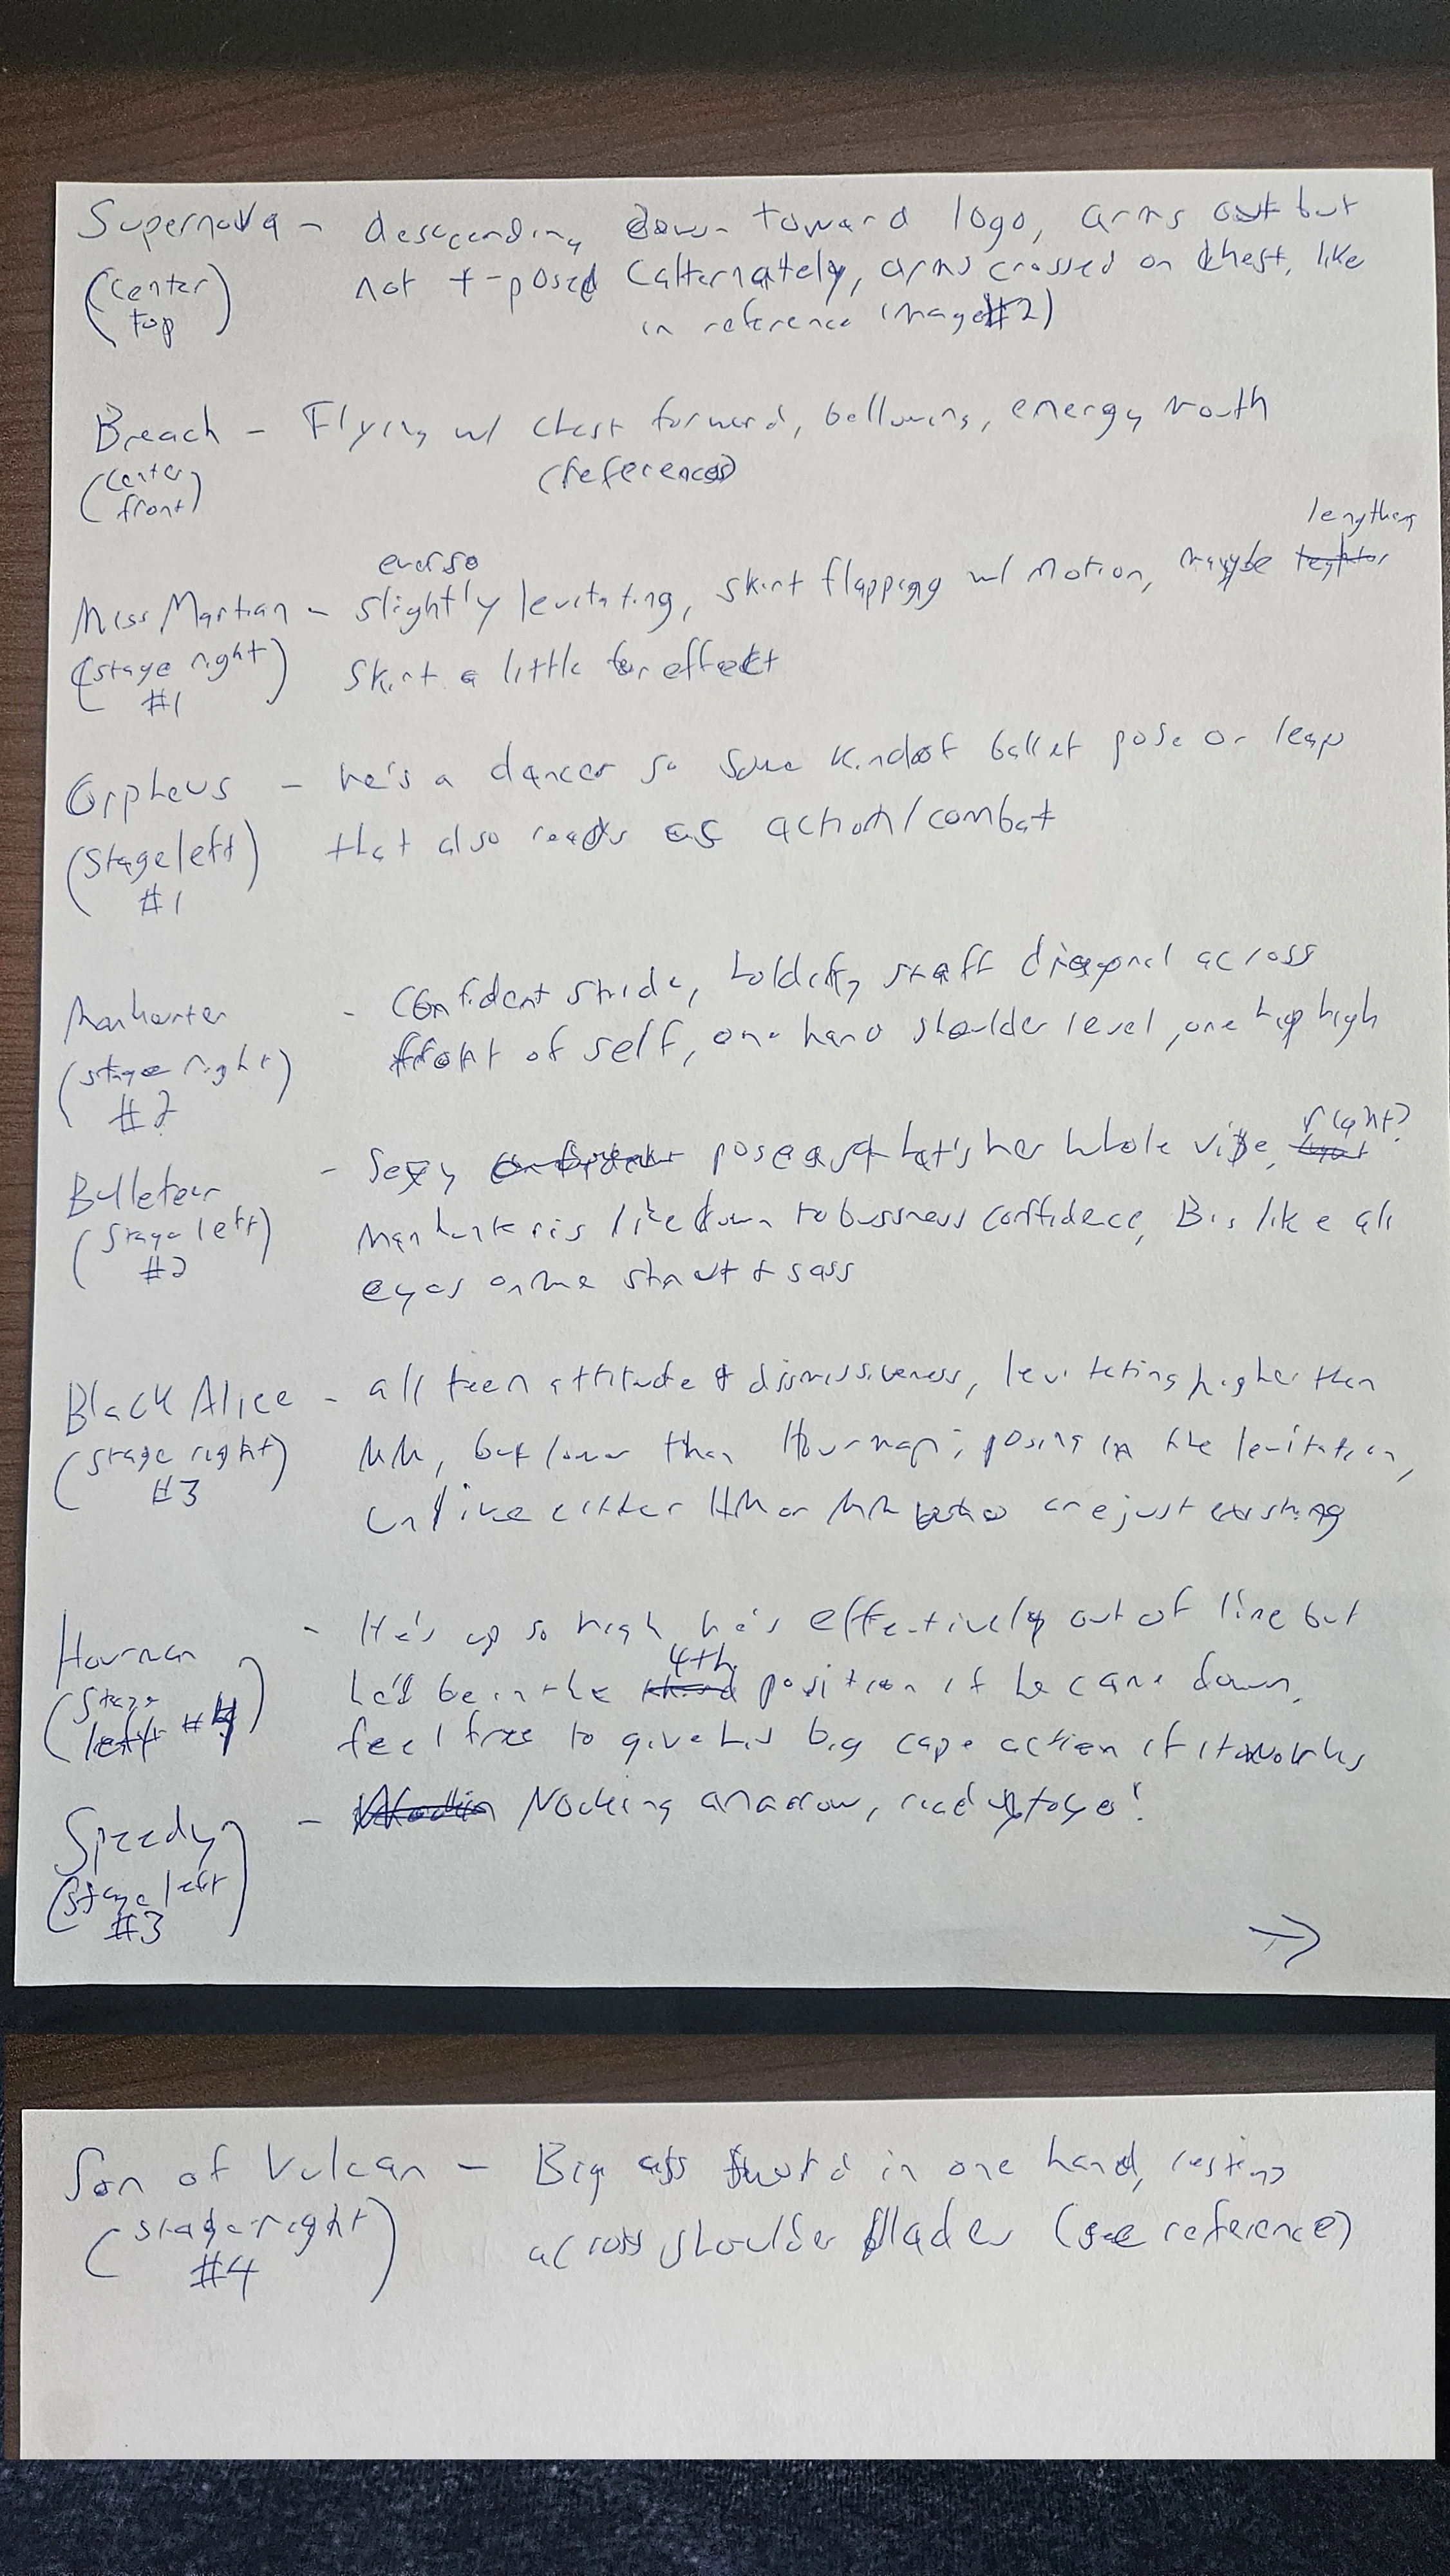 Supernova - descending down toward logo, arms out but
(center top) not t-posed (alternately, arms crossed on chest, like
in reference image #2)
Breach - Flying w/ chest forward, bellowing, energy mouth
(center front) (references)
lengthen
ever so
Miss Martian - slightly levitating, skirt flapping w/ motion, maybe
(stage right) skirt a little for effect
#1
Orpheus - he's a dancer so some kind of ballet pose or leap
(stage left) that also reads as action/combat
#1
Manhunter - Confident stride, holding staff diagonal across
(stage right) front of self, one hand shoulder level, one hip high
#2
right?
Bulleteer - Sexy pose as that's her whole vibe,
(stage left) Manhunter is like down to bussness confidence, B is like all
#2 eyes on me strut & sass
Black Alice - all teen attitude & dismissiveness, levitating higher than
(stage right) MM, but lower than Hourman; posing in the levitation,
#3 unlike either HM or MM who are just existing
Hourman - He's up so high he's effectively out of line but
4th
(stage he'd be in the position if he came down,
left #4) feel free to give his big cape action if it works
Speedy - Nocking an arrow, ready to go!
(stage left)
#3
→
Son of Vulcan - Big ass sword in one hand, resting
(stage right) across shoulder blades (see reference)
#4